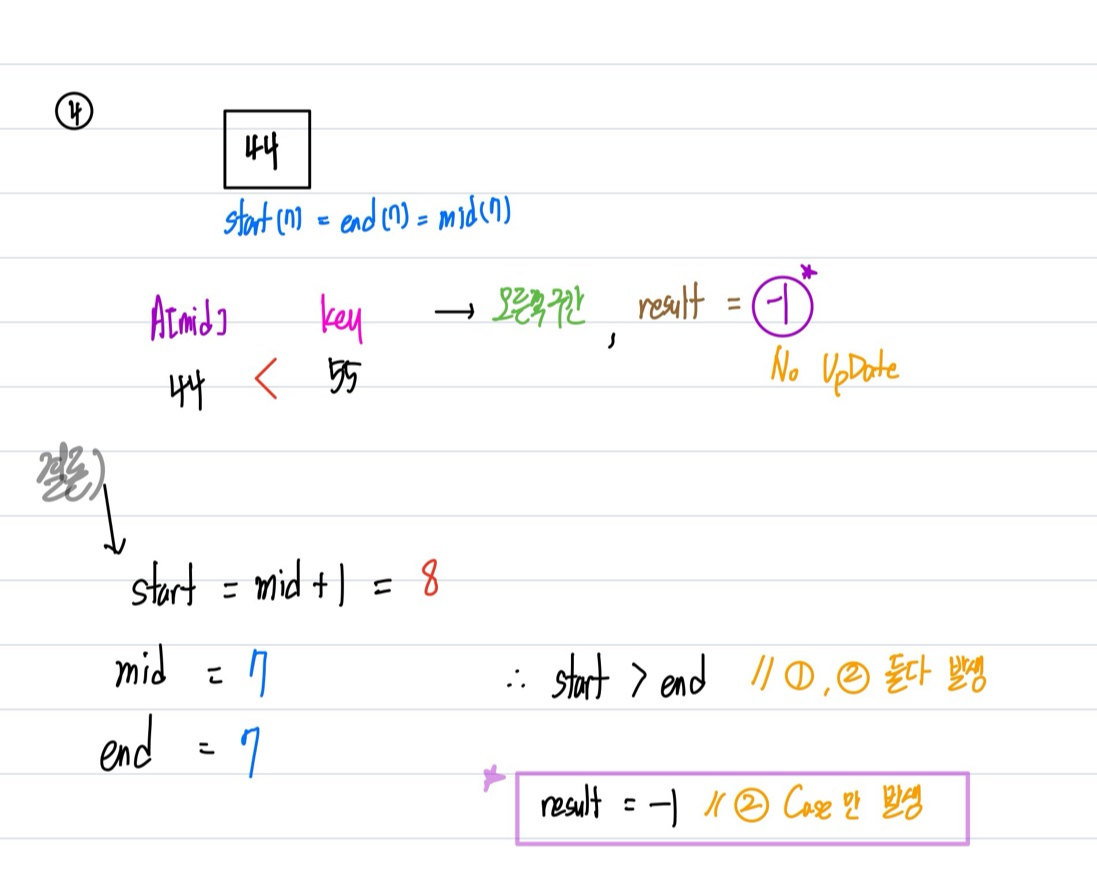 ④
44
start(7) = end(7) = mid(7)
A[mid] key → 오른쪽구간, result = -1 *
44 < 55 No UpDate
결론)
start = mid+1 = 8
mid = 7
∴ start > end // ①, ② 둘다 발생
end = 7
* result = -1 // ② Case 만 발생